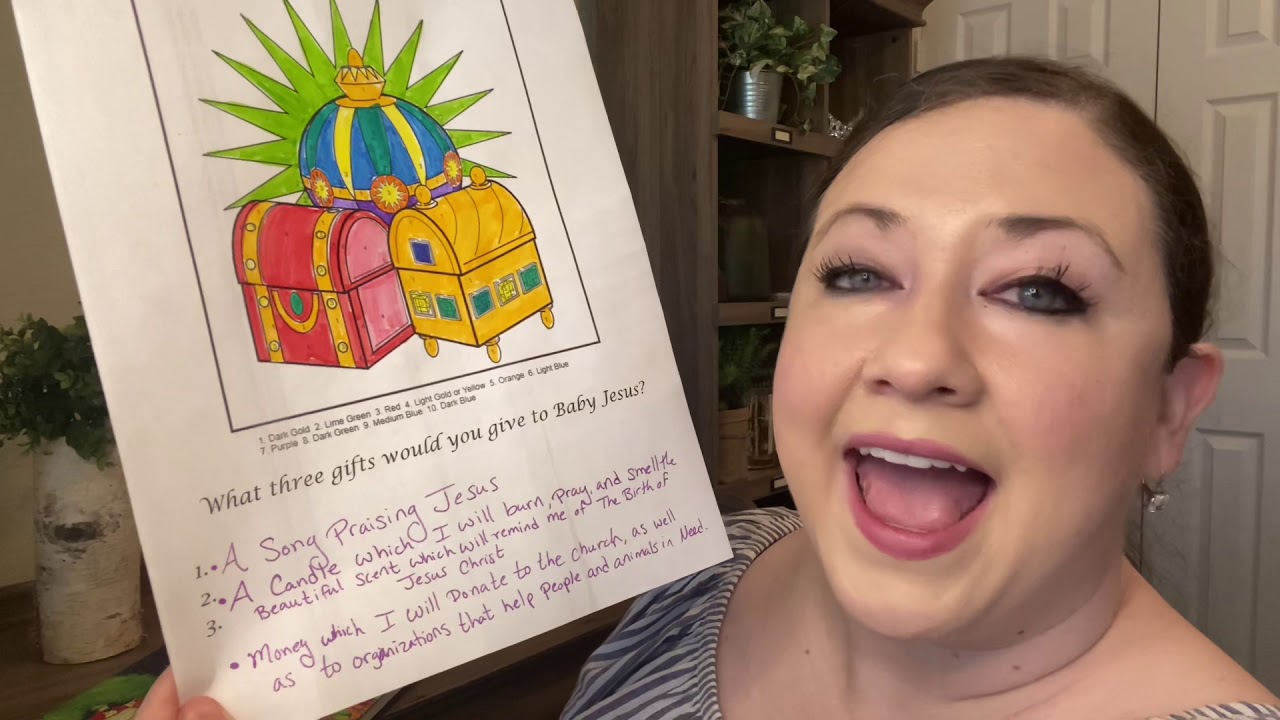 1. Dark Gold 2. Lime Green 3. Red 4. Light Gold or Yellow 5. Orange 6. Light Blue
7. Purple 8. Dark Green 9. Medium Blue 10. Dark Blue
What three gifts would you give to Baby Jesus?
1. • A Song Praising Jesus
2. • A Candle which I will burn, pray, and smell the
Beautiful scent which will remind me of The Birth of
3. Jesus Christ
• Money which I will Donate to the church, as well
as to organizations that help people and animals in Need.